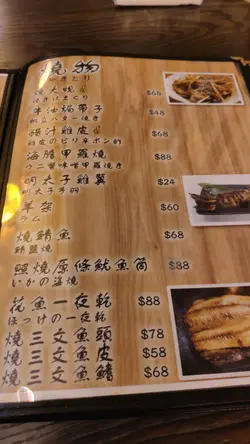 燒物
燒大蜆
$68
牛油焗帶子
帆立バター焼き
$48
醋汁雞皮
鶏皮のピリ辛ポン酢
$68
海膽甲羅燒
ウニ蟹味噌甲羅焼き
$88
明太子雞翼
明太子手羽
$24
羊架
ラム
$60
燒鯖魚
鯖塩焼き
$68
照燒原條魷魚筒
いかの姿焼
$88
花魚一夜乾
ほっけの一夜乾
$88
燒三文魚頭
$78
燒三文魚皮
$58
燒三文魚鰭
$68